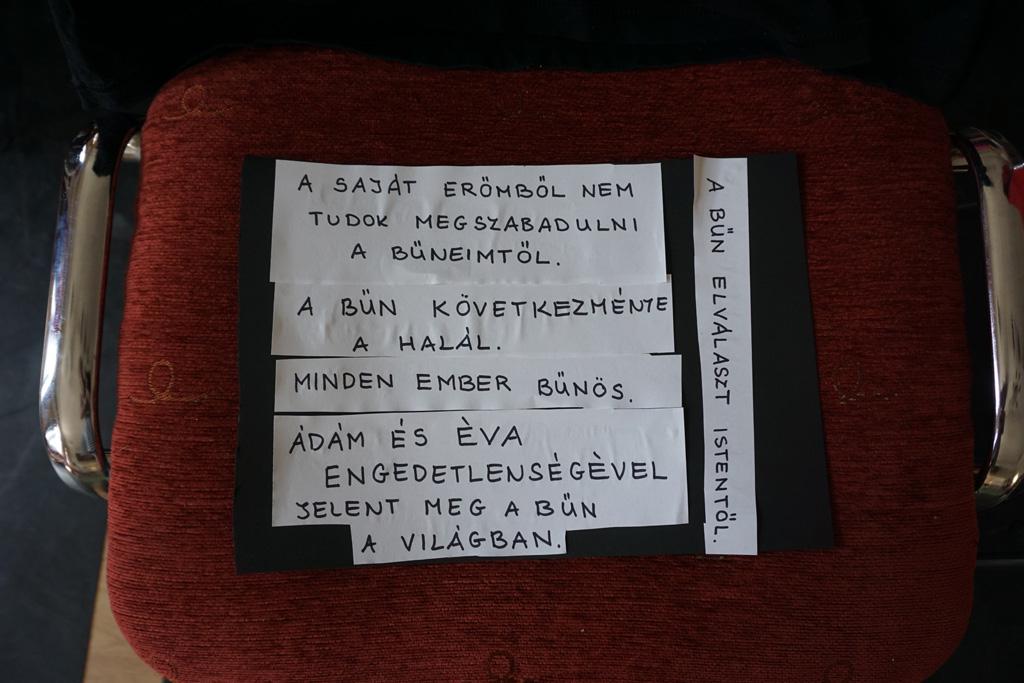 A SAJÁT ERŐMBŐL NEM
TUDOK MEGSZABADULNI
A BŰNEIMTŐL.
A BŰN KÖVETKEZMÉNYE
A HALÁL.
MINDEN EMBER BŰNÖS.
ÁDÁM ÉS ÉVA
ENGEDETLENSÉGÉVEL
JELENT MEG A BŰN
A VILÁGBAN.
A BŰN ELVÁLASZT ISTENTŐL.